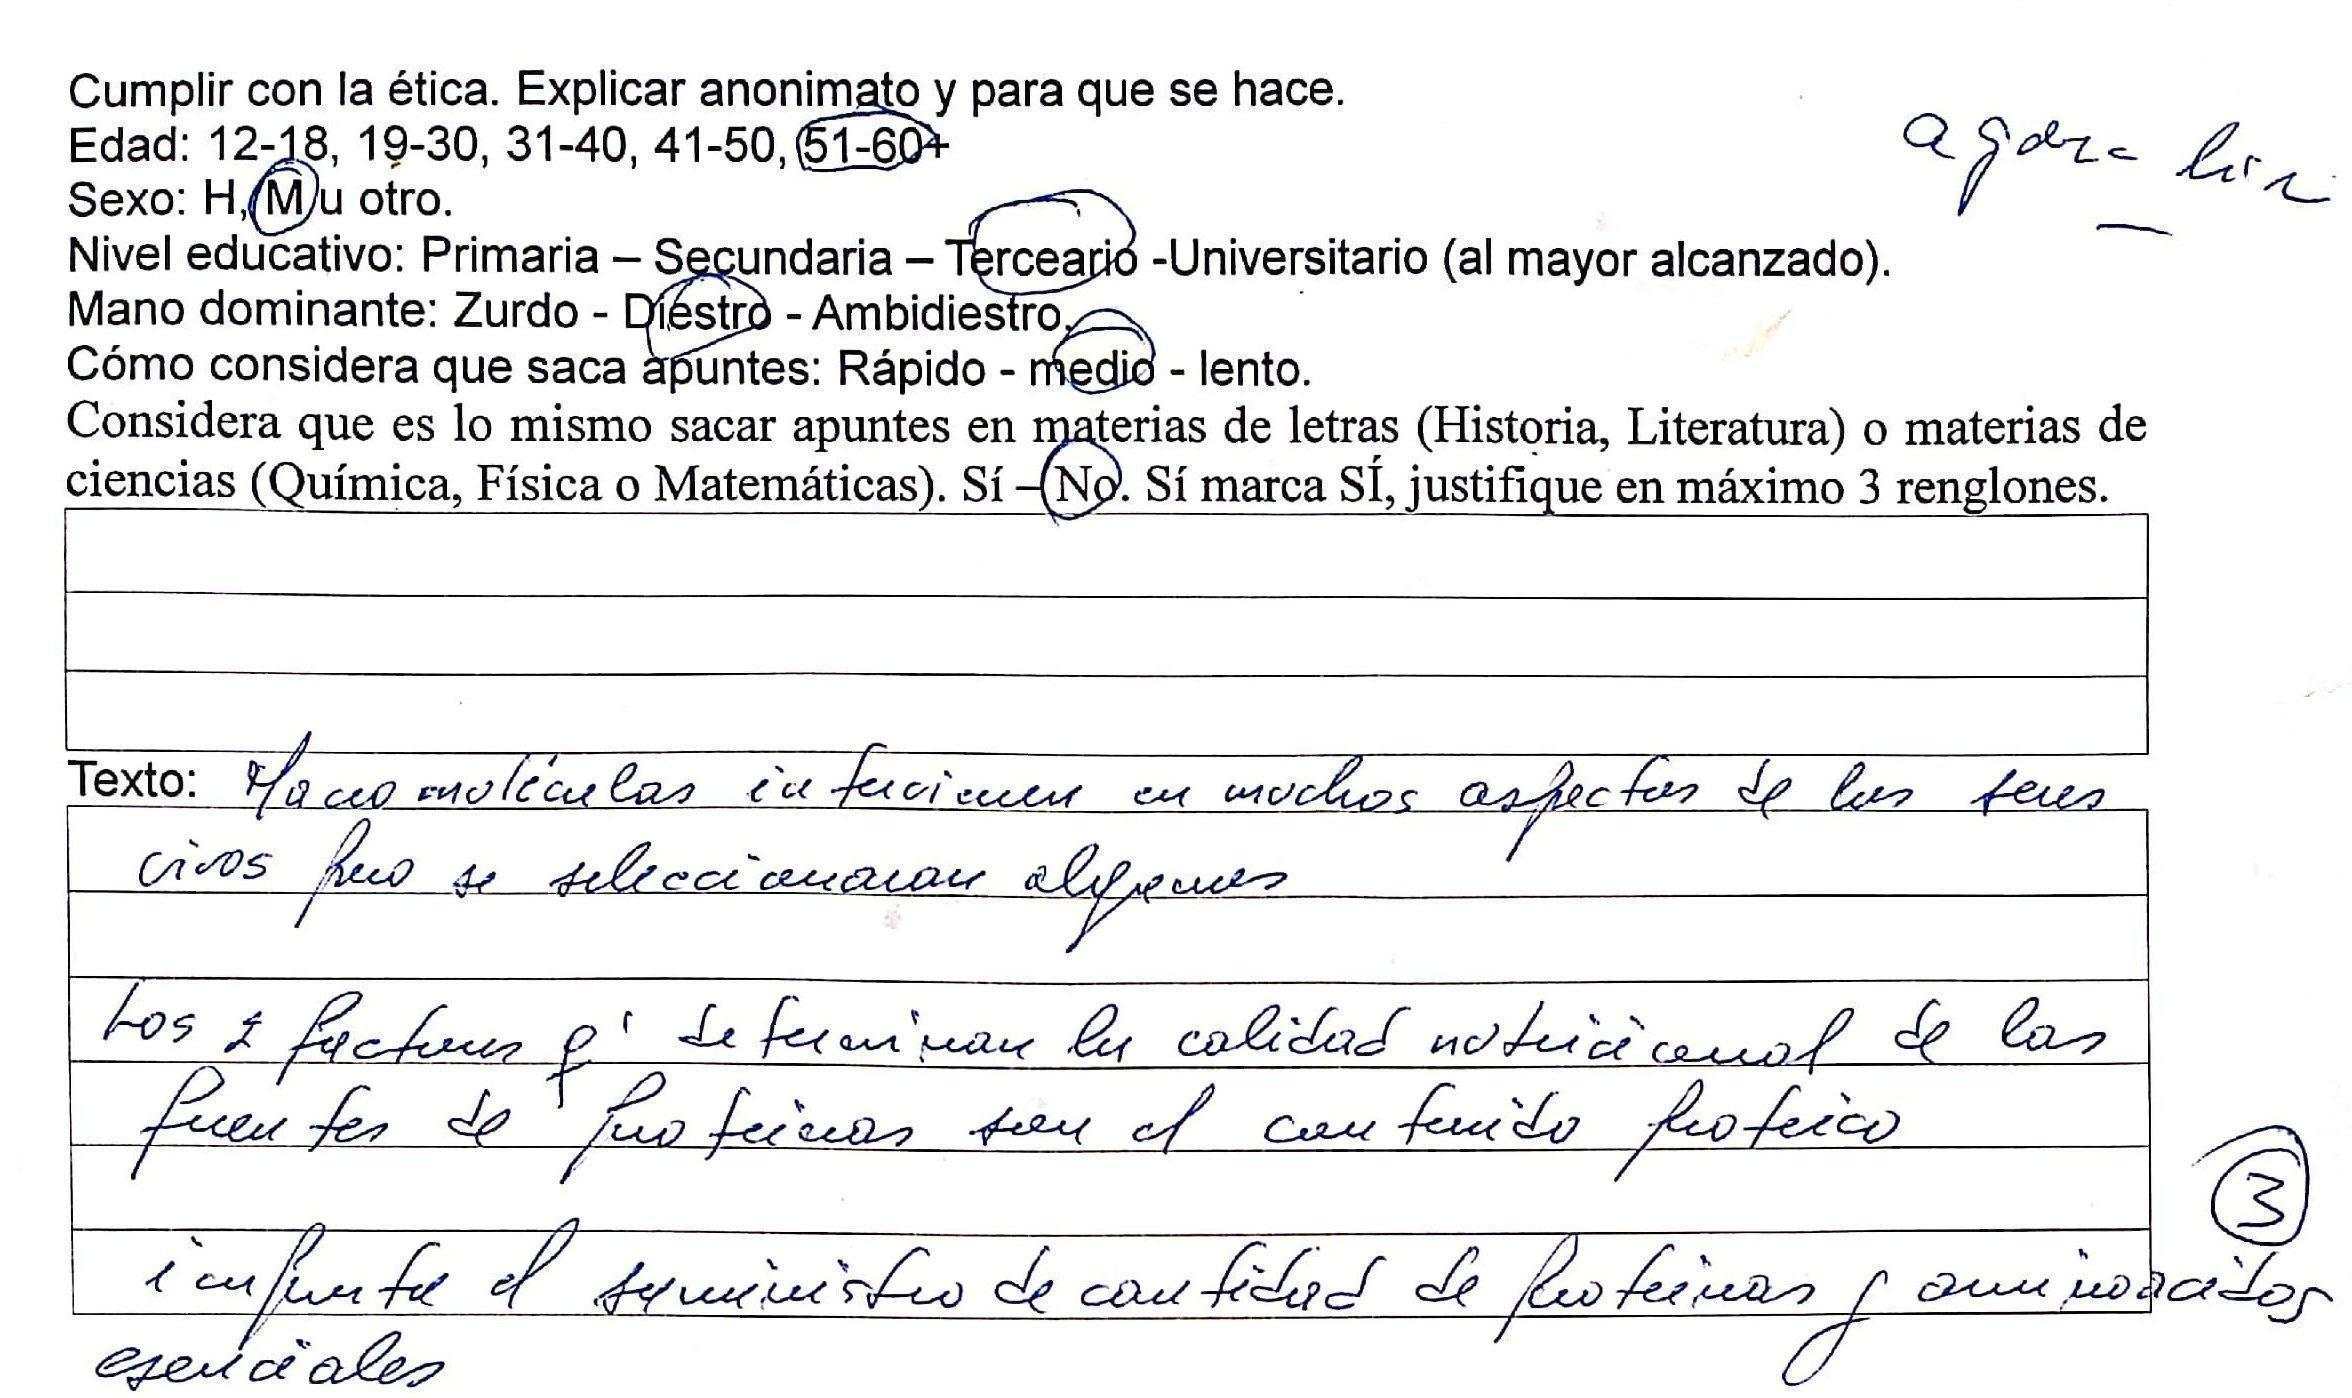 Cumplir con la ética. Explicar anonimato y para que se hace.
Edad: 12-18, 19-30, 31-40, 41-50, 51-60+
Sexo: H, M u otro.
Nivel educativo: Primaria – Secundaria – Terceario -Universitario (al mayor alcanzado).
Mano dominante: Zurdo - Diestro - Ambidiestro.
Cómo considera que saca apuntes: Rápido - medio - lento.
Considera que es lo mismo sacar apuntes en materias de letras (Historia, Literatura) o materias de
ciencias (Química, Física o Matemáticas). Sí – No. Sí marca SÍ, justifique en máximo 3 renglones.
Texto: Macromoléculas intervienen en muchos aspectos de los seres
vivos pero se seleccionaran algunos
Los 2 factores q' determinan la calidad nutricional de las
fuentes de proteinas son el contenido proteico
3
importa el suministro de cantidad de proteinas y aminoacidos
esenciales